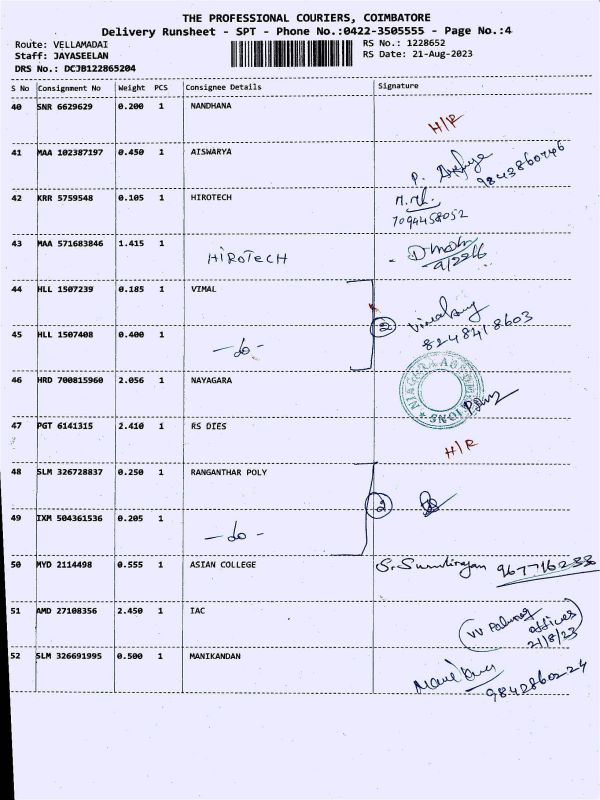 THE PROFESSIONAL COURIERS, COIMBATORE
Delivery Runsheet - SPT - Phone No.:0422-3505555 - Page No.:4
Route: VELLAMADAI
RS No.: 1228652
Staff: JAYASEELAN
RS Date: 21-Aug-2023
DRS No.: DCJB122865204
S No Consignment No Weight PCS Consignee Details Signature
40 SNR 6629629 0.200 1 NANDHANA
H/R
41 MAA 102387197 0.450 1 AISWARYA
P.
9843860746
42 KRR 5759548 0.105 1 HIROTECH
7094458052
43 MAA 571683846 1.415 1
HiROTECH
44 HLL 1507239 0.185 1 VIMAL
2
8248418603
45 HLL 1507408 0.400 1
-do-
46 HRD 700815960 2.056 1 NAYAGARA
47 PGT 6141315 2.410 1 RS DIES
H/R
48 SLM 326728837 0.250 1 RANGANTHAR POLY
2
49 IXM 504361536 0.205 1
-do-
50 MYD 2114498 0.555 1 ASIAN COLLEGE
51 AMD 27108356 2.450 1 IAC
21/8/23
52 SLM 326691995 0.500 1 MANIKANDAN